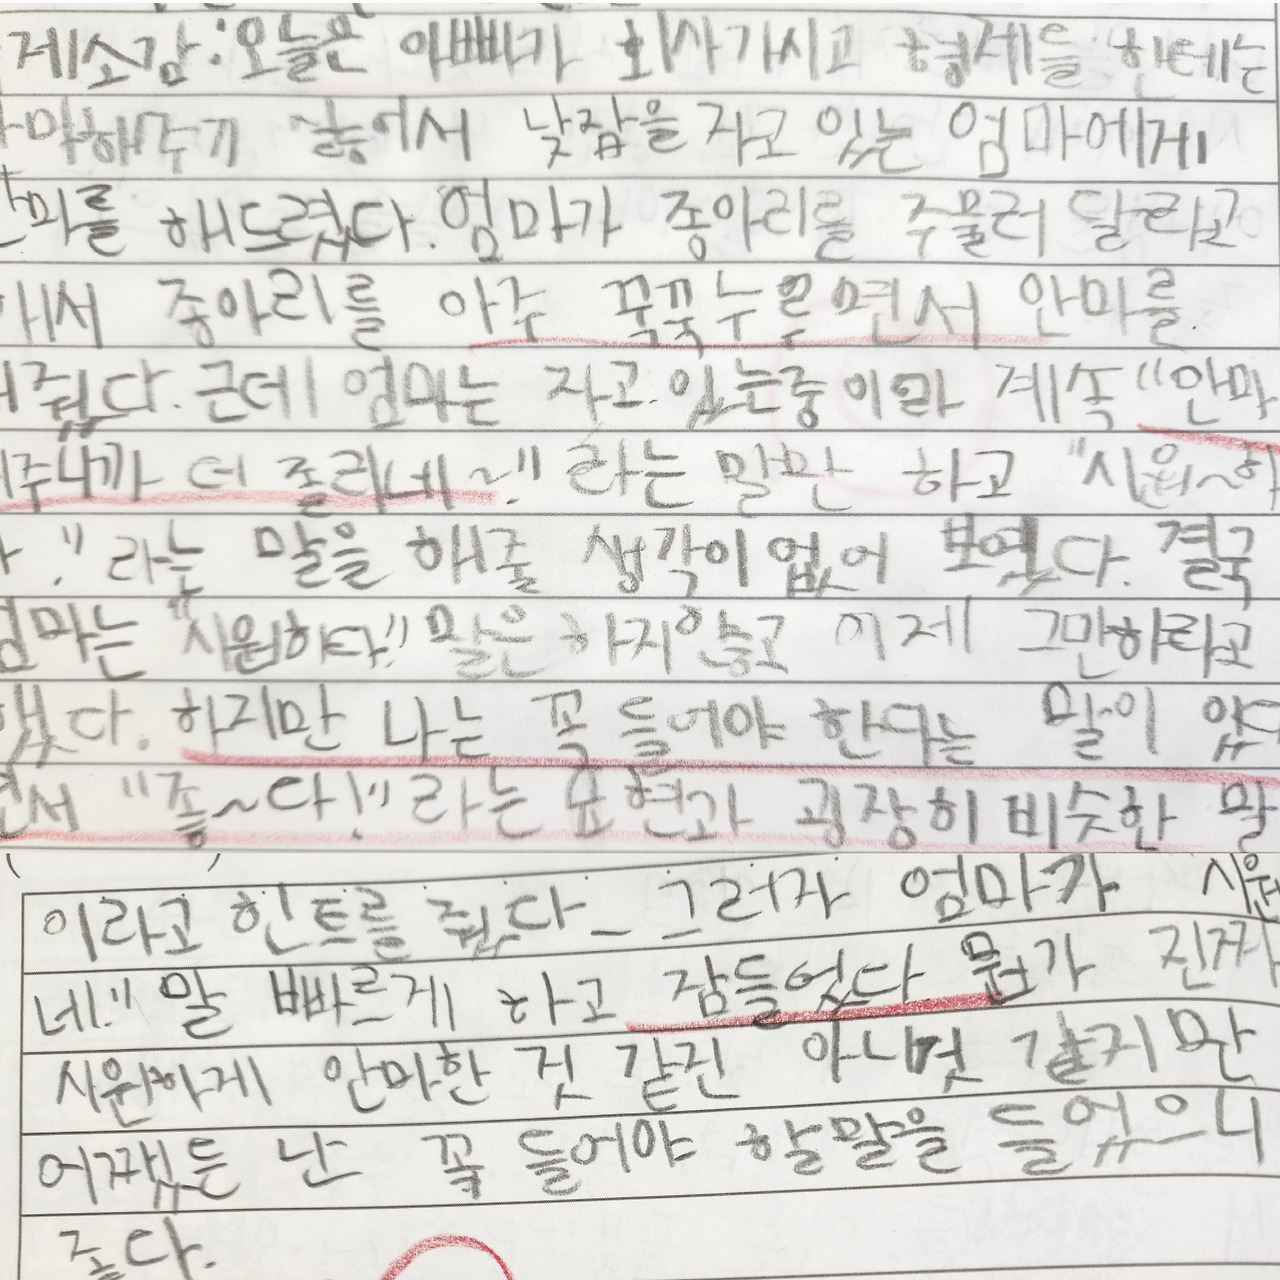 제소감:오늘은 아빠가 회사가시고 형제들 한테는
마해주기 싫어서 낮잠을 자고 있는 엄마에게
안마를 해드렸다. 엄마가 종아리를 주물러 달라고
해서 종아리를 아주 꾹꾹누르면서 안마를
해줬다. 근데 엄마는 자고 있는중이라 계속 "안마
해주니까 더 졸리네~!" 라는 말만 하고 "시원~하
다!" 라는 말을 해줄 생각이 없어 보였다. 결국
엄마는 "시원하다!" 말은 하지않쿄 이제 그만하라고
했다. 하지만 나는 꼭 들어야 한다는 말이 있다
면서 "좋~다!" 라는 표현과 굉장히 비슷한 말
이라고 힌트를 줬다_ 그러자 엄마가 시원
네." 말 빠르게 하고 잠들었다 뭔가 진짜
시원하게 안마한 것 같진 아니컷 같지만
어쨌든 난 꼭 들어야 할말을 들었으니
좋다.